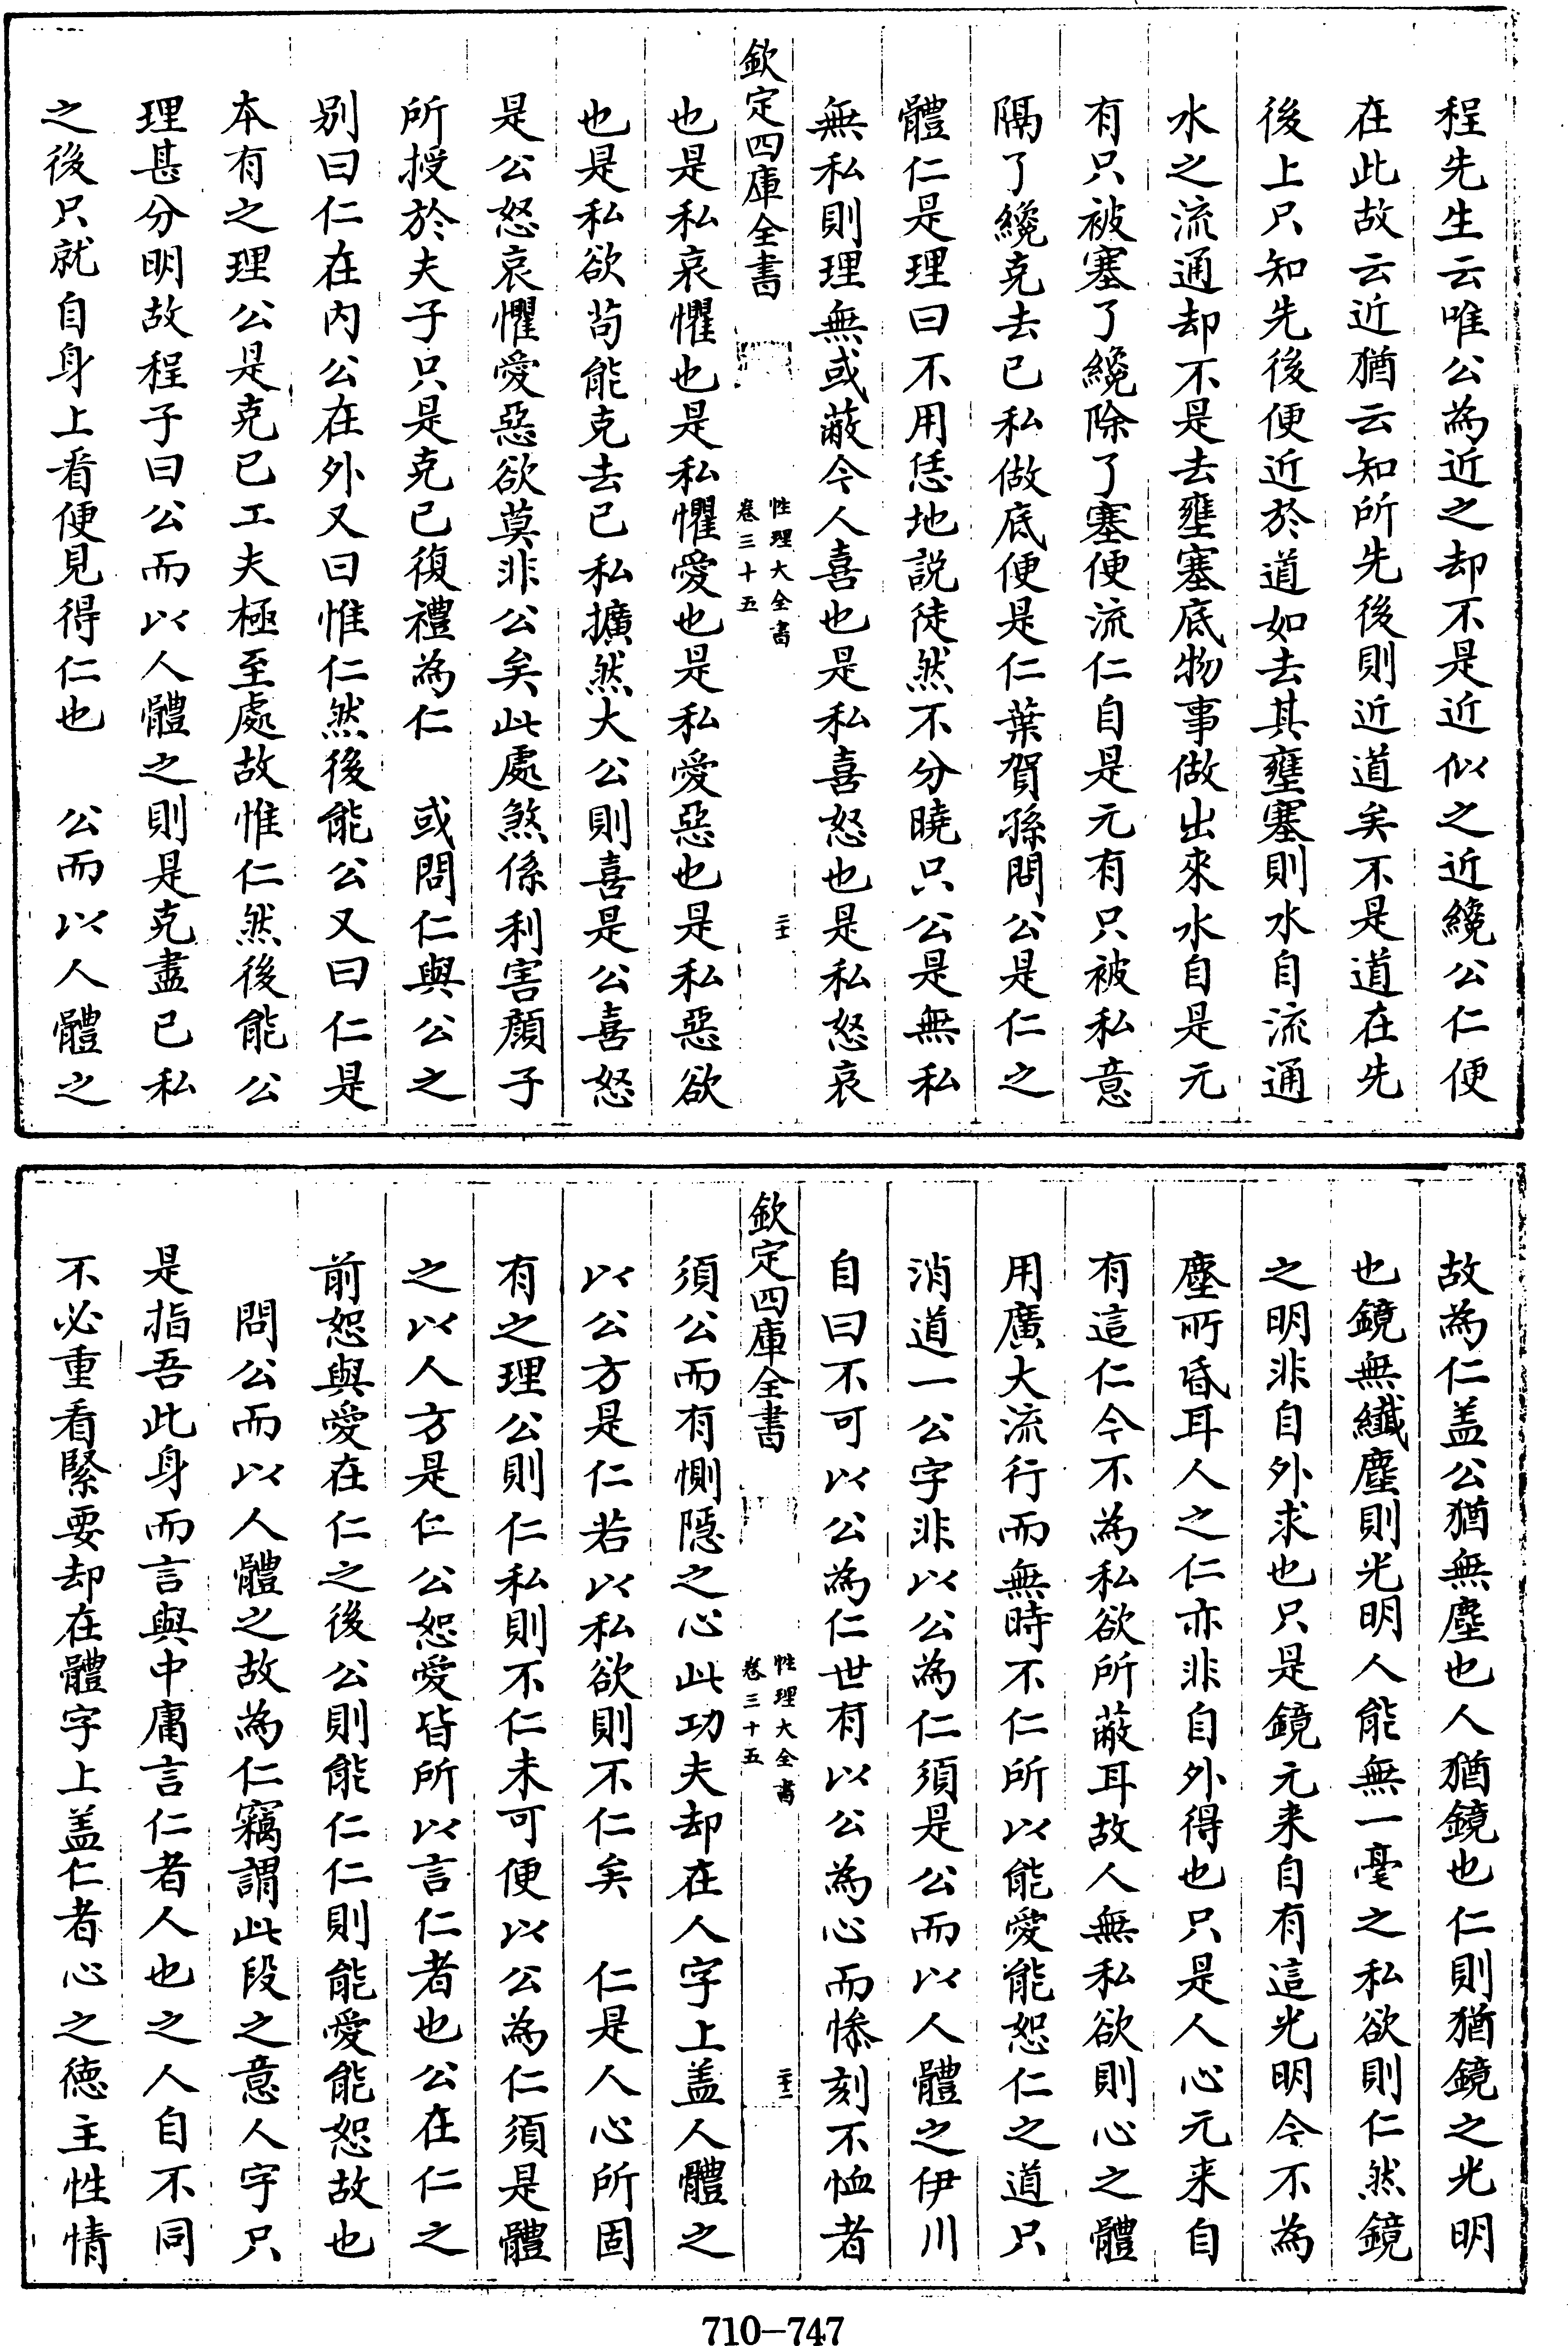 程先生云唯公為近之却不是近似之近纔公仁便
在此故云近猶云知所先後則近道矣不是道在先
後上只知先後便近於道如去其壅塞則水自流通
水之流通却不是去壅塞底物事做出來水自是元
有只被塞了纔除了塞便流仁自是元有只被私意
隔了纔克去已私做底便是仁葉賀孫問公是仁之
體仁是理曰不用恁地説徒然不分曉只公是無私
無私則理無或蔽今人喜也是私喜怒也是私怒哀
欽定四庫全書
性理大全書
卷三十五
二十一
也是私哀懼也是私懼愛也是私愛惡也是私惡欲
也是私欲苟能克去已私擴然大公則喜是公喜怒
是公怒哀懼愛惡欲莫非公矣此處煞係利害顔子
所授於夫子只是克已復禮為仁　或問仁與公之
别曰仁在内公在外又曰惟仁然後能公又曰仁是
本有之理公是克已工夫極至處故惟仁然後能公
理甚分明故程子曰公而以人體之則是克盡已私
之後只就自身上看便見得仁也　公而以人體之
故為仁盖公猶無塵也人猶鏡也仁則猶鏡之光明
也鏡無纎塵則光明人能無一毫之私欲則仁然鏡
之明非自外求也只是鏡元来自有這光明今不為
塵所昏耳人之仁亦非自外得也只是人心元来自
有這仁今不為私欲所蔽耳故人無私欲則心之體
用廣大流行而無時不仁所以能愛能恕仁之道只
消道一公字非以公為仁須是公而以人體之伊川
自曰不可以公為仁世有以公為心而慘刻不恤者
欽定四庫全書
性理大全書
卷三十五
二十二
須公而有惻隠之心此功夫却在人字上盖人體之
以公方是仁若以私欲則不仁矣　仁是人心所固
有之理公則仁私則不仁未可便以公為仁須是體
之以人方是仁公恕愛皆所以言仁者也公在仁之
前恕與愛在仁之後公則能仁仁則能愛能恕故也
問公而以人體之故為仁竊謂此段之意人字只
是指吾此身而言與中庸言仁者人也之人自不同
不必重看緊要却在體字上盖仁者心之徳主性情
710-747